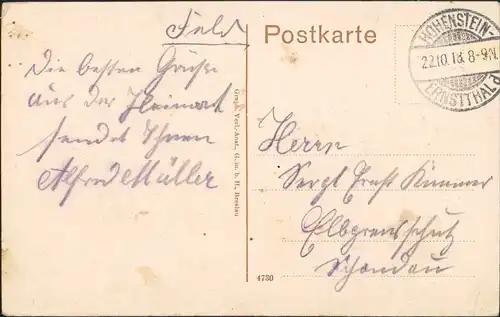 Feld
Postkarte
HOHENSTEIN-
22.10.18. 8-9N.
ERNSTTHAL
Die besten Grüße
aus der Heimat
sendet Ihnen
Alfred Müller
Graph. Verl.-Anst., G. m. b. H., Breslau
Herrn
Sergt Ernst
Elbgrenzschutz
Schandau
4730